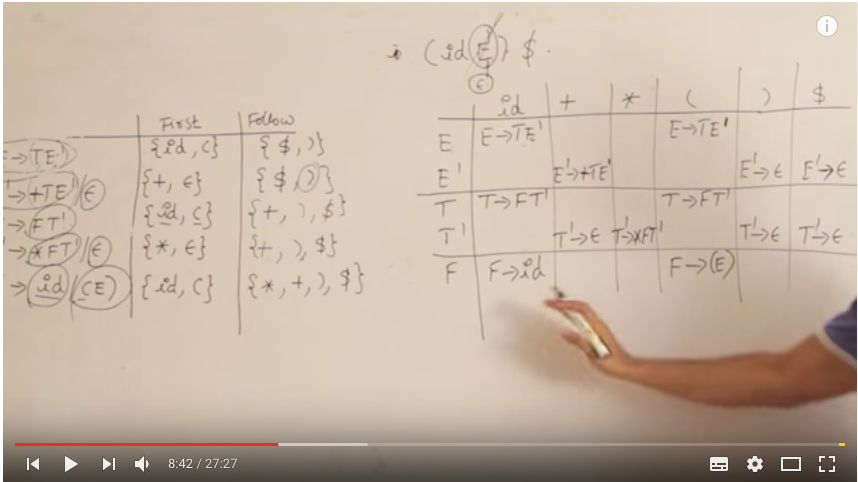 ( id E' ) $
ϵ
First Follow
→TE' {id, (} {$, )}
'→+TE'/ϵ {+, ϵ} {$, )}
→FT' {id, (} {+, ), $}
'→*FT'/ϵ {*, ϵ} {+, ), $}
→id/(E) {id, (} {*, +, ), $}
id + * ( ) $
E E→TE' E→TE'
E' E'→+TE' E'→ϵ E'→ϵ
T T→FT' T→FT'
T' T'→ϵ T'→*FT' T'→ϵ T'→ϵ
F F→id F→(E)
8:42 / 27:27